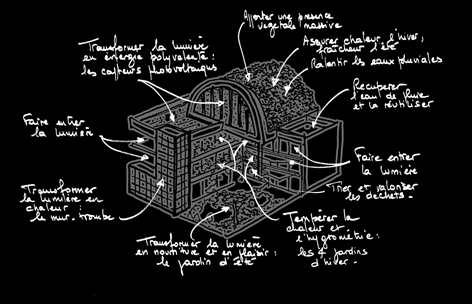 Apporter une présence
végétale massive
Transformer la lumière
en énergie polyvalente :
les capteurs photovoltaïques
Assurer chaleur l'hiver,
fraîcheur l'été
Ralentir les eaux pluviales
Récupérer
l'eau de pluie
et la réutiliser
Faire entrer
la lumière
Faire entrer
la lumière
Trier et valoriser
les déchets.
Transformer
la lumière en
chaleur :
le mur trombe
Tempérer la
chaleur et
l'hygrométrie :
les 4 jardins
d'hiver.
Transformer la lumière
en nourriture et en plaisir :
le jardin d'été